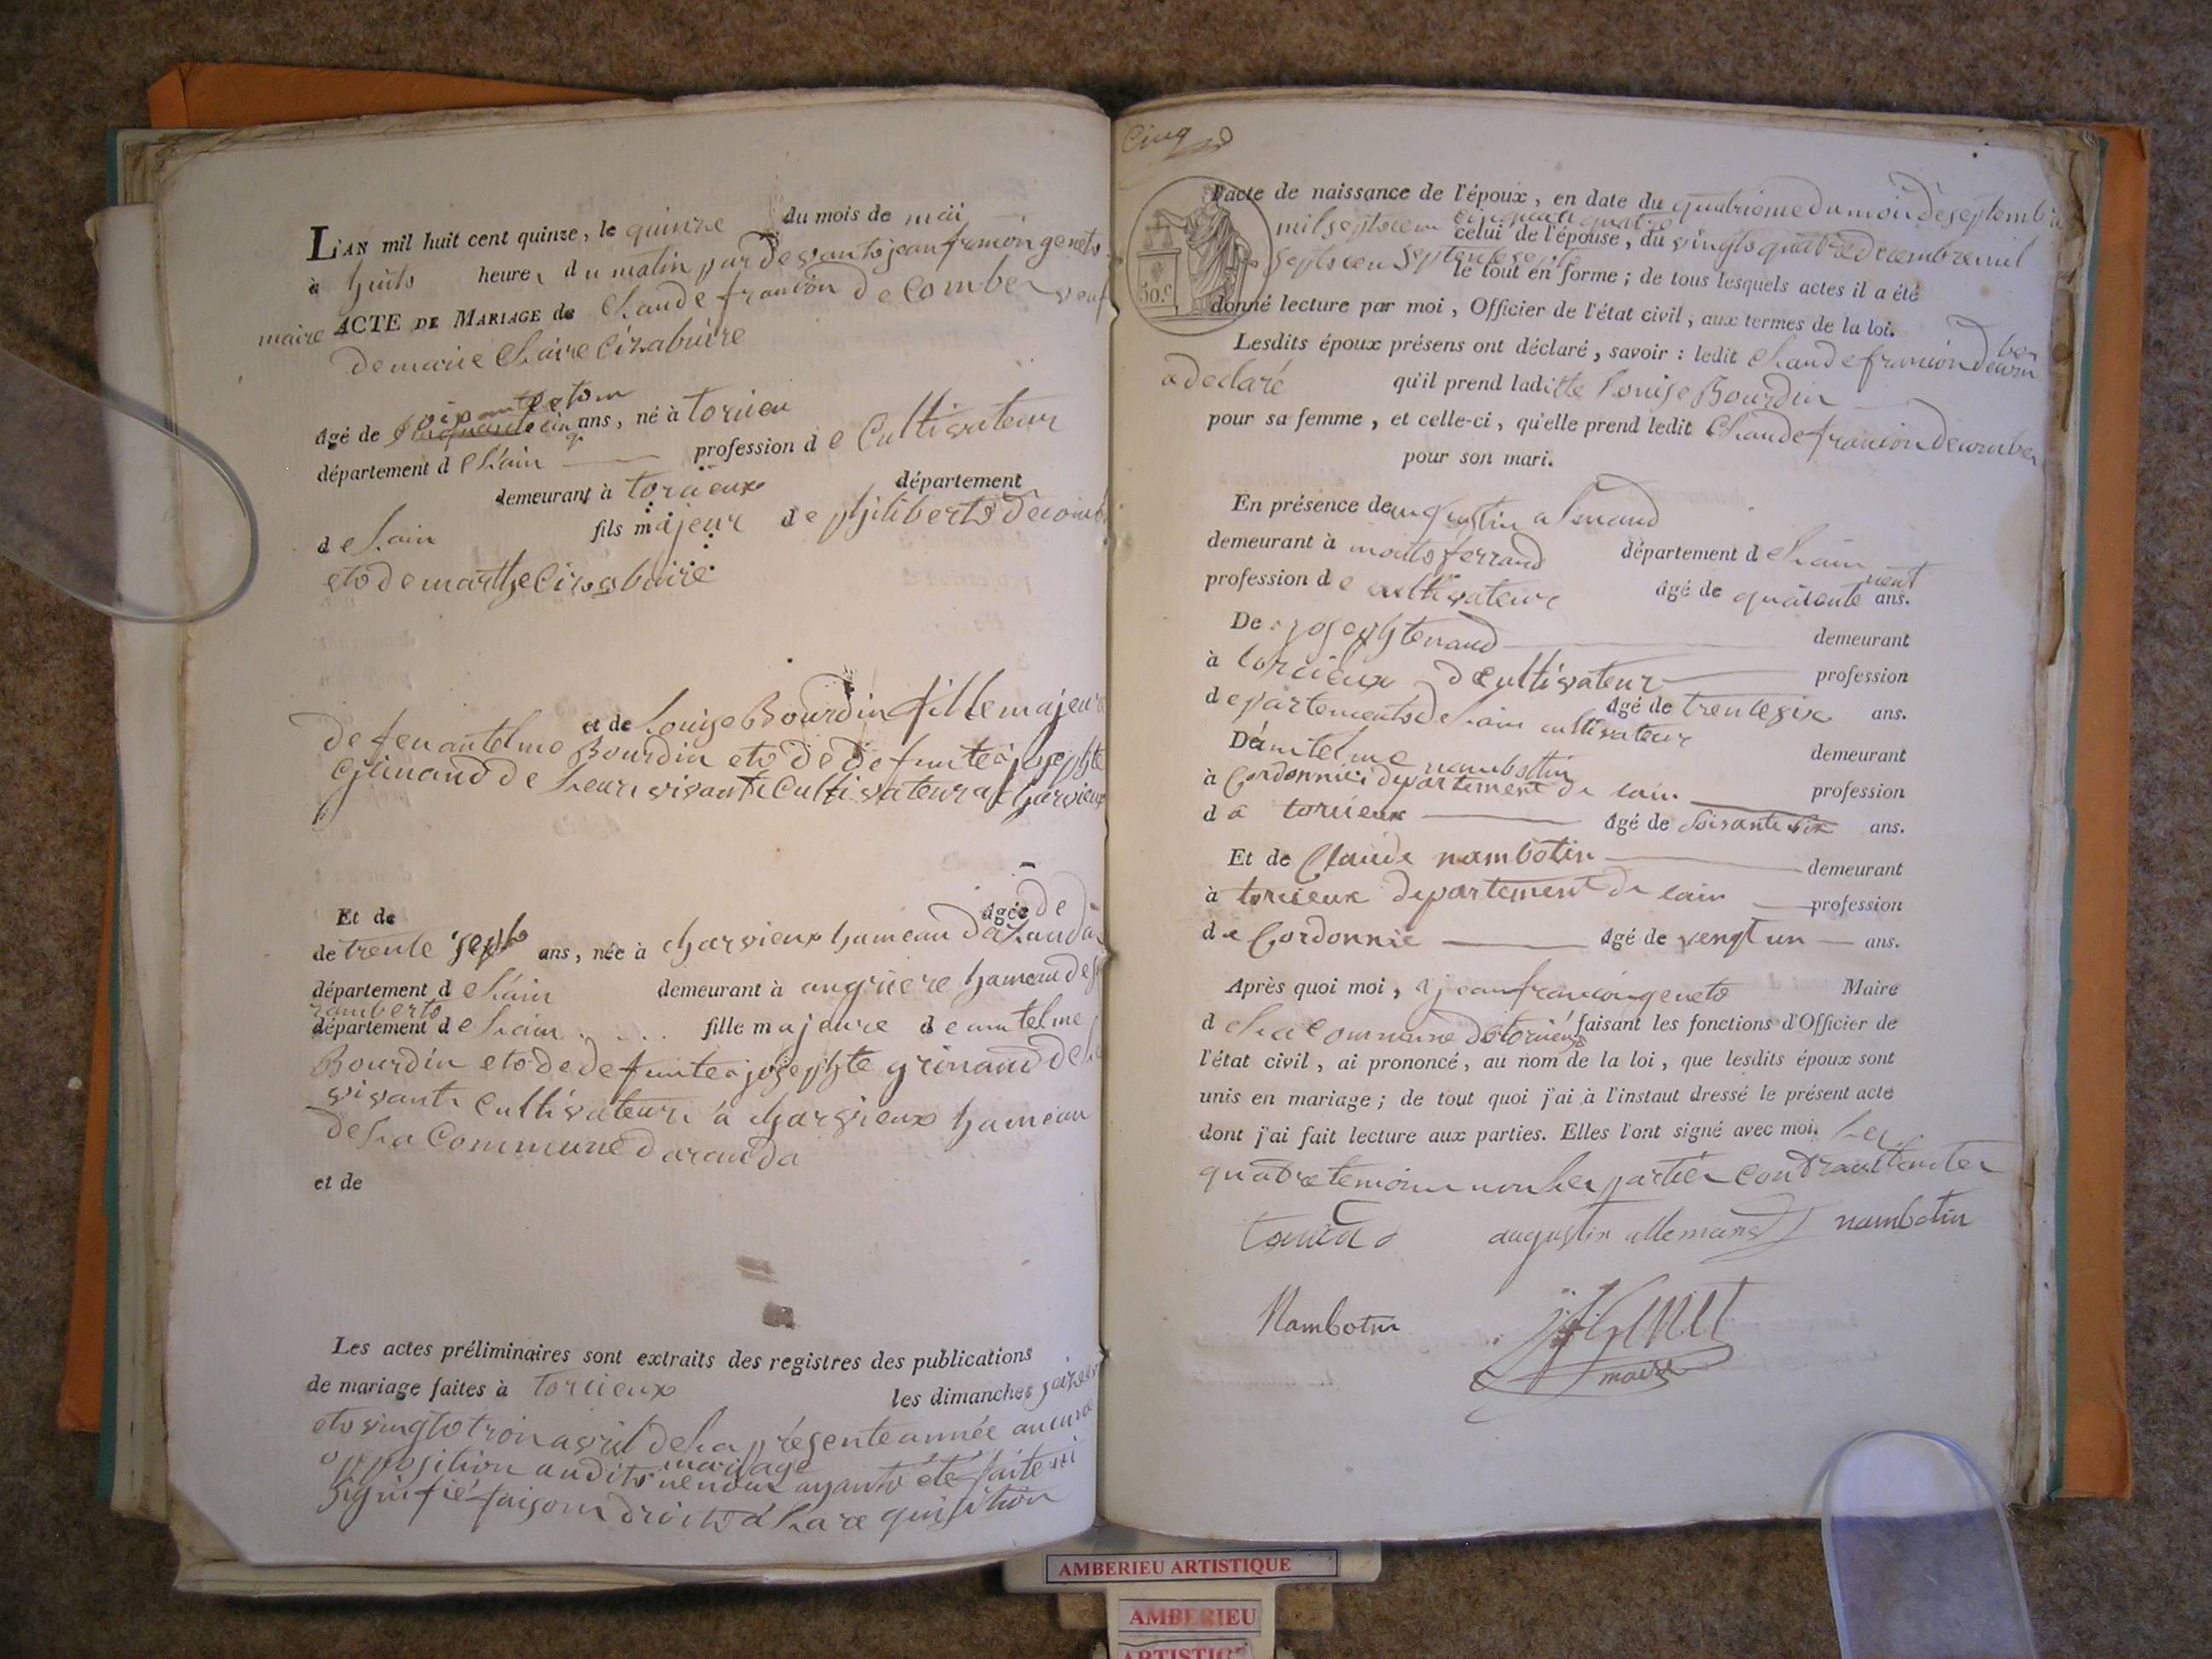 L'AN mil huit cent quinze, le quinze du mois de mai
à huits heures du matin par devants jean francoin genets
maire ACTE DE MARIAGE de Claude francoin decomber veuf
de marie Claire Cizabuire
âgé de cinq ans, né à torcieu
département de L'ain profession de Cultivateur
demeurant à torcieux département
de Lain fils majeur de philiberts
ets de marthe Cizabuire
et de Louise Bourdin fille majeure
de feu antelme Bourdin ets de defuntes josephte
grinand de Leur vivants Cultivateur a Charvieux
Et de âgée de
de trente sept ans, née à charvieux hameau
département de L'ain demeurant à angriere hameau de
ramberts
département de Lain fille majeure de antelme
Bourdin ets de defuntes josephte grinand de
vivants cultivateurs à charvieux hameau
de La Commune daranda
et de
Les actes préliminaires sont extraits des registres des publications
de mariage faites à torcieux les dimanches
ets vingts trois avril de La présente année aucune
opposition audits mariage ne nous ayants été faite ni
Signifié faisons droits à La requisition
Cinq
50.c
l'acte de naissance de l'époux, en date du quatrieme du mois de septembre
mil septs cen cinquante quatre celui de l'épouse, du vingts quatre decembre mil
septs cen septente sept le tout en forme ; de tous lesquels actes il a été
donné lecture par moi, Officier de l'état civil, aux termes de la loi.
Lesdits époux présens ont déclaré, savoir : ledit Claude francoin decomber
a declaré qu'il prend laditte Louise Bourdin
pour sa femme, et celle-ci, qu'elle prend ledit Claude francoin decomber
pour son mari.
En présence de augustin alemand
demeurant à monts ferrand département de L'ain
profession de cultivateur âgé de quarente neuf ans.
De joseph tenand demeurant
à torcieux de cultivateur profession
departements de Lain cultivateur âgé de trente six ans.
De antelme nambottin demeurant
à Cordonnier departement de lain profession
d a torcieux âgé de soisante six ans.
Et de Claude nambotin demeurant
à torcieux departement de lain profession
de Cordonnie âgé de vengt un ans.
Après quoi moi, jean francoin genets Maire
de La Commune de torcieux faisant les fonctions d'Officier de
l'état civil, ai prononcé, au nom de la loi, que lesdits époux sont
unis en mariage ; de tout quoi j'ai à l'instaut dressé le présent acte
dont j'ai fait lecture aux parties. Elles l'ont signé avec moi. Les
quatre temoins non Les parties contractantes
augustin allemand nambotin
Nambotin j f GENET
maire
AMBERIEU ARTISTIQUE
AMBERIEU
ARTISTIQUE